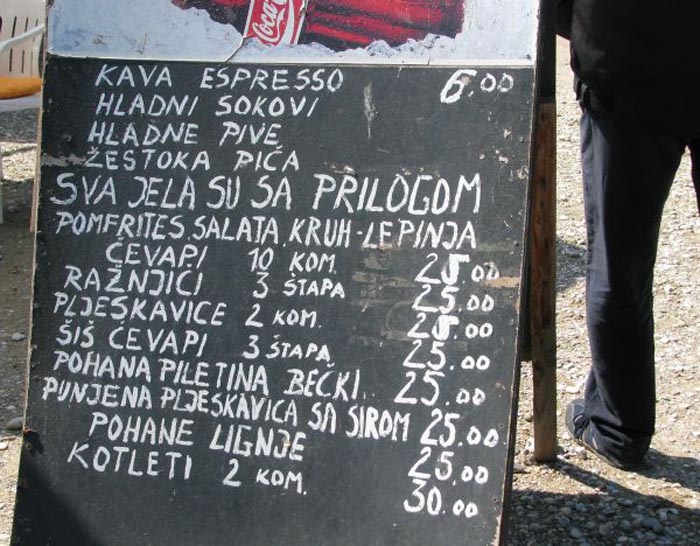 Coca-Cola
KAVA ESPRESSO 6.00
HLADNI SOKOVI
HLADNE PIVE
ŽESTOKA PIČA
SVA JELA SU SA PRILOGOM
POMFRITES, SALATA, KRUH-LEPINJA
ČEVAPI 10 KOM. 25.00
RAŽNJIČI 3 ŠTAPA 25.00
PLJESKAVICE 2 KOM. 25.00
ŠIŠ ČEVAPI 3 ŠTAPA 25.00
POHANA PILETINA BEČKI.. 25.00
PUNJENA PLJESKAVICA SA SIROM 25.00
POHANE LIGNJE 25.00
KOTLETI 2 KOM. 30.00